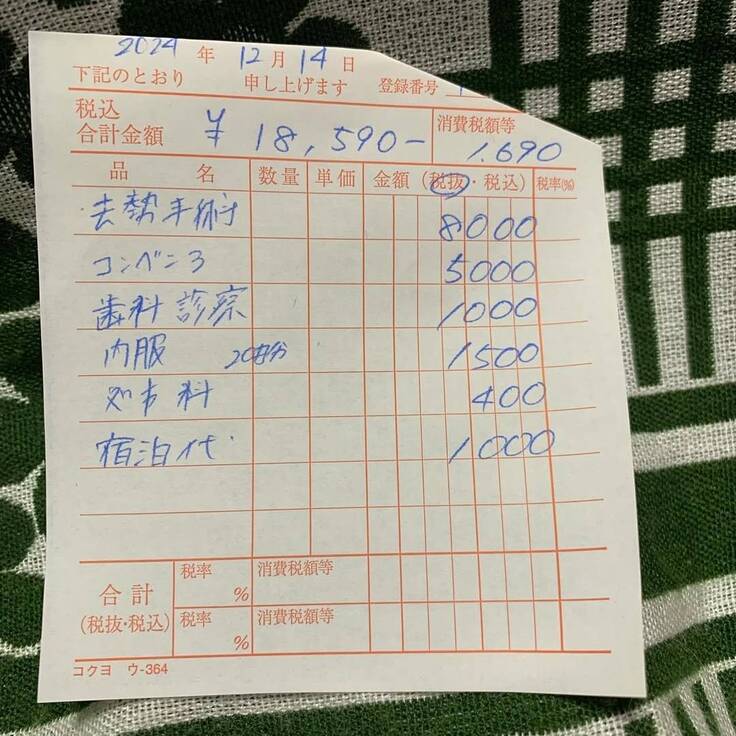 2024 年 12 月 14 日
下記のとおり 申し上げます 登録番号
税込 合計金額 ¥ 18,590- 消費税額等 1,690
品 名 数量 単価 金額 (税抜・税込) 税率(%)
去勢手術 8000
コンベニ3 5000
歯科診察 1000
内服 20日分 1500
処方料 400
宿泊代 1000
合計 (税抜・税込) 税率 % 消費税額等
税率 % 消費税額等
コクヨ ウ-364